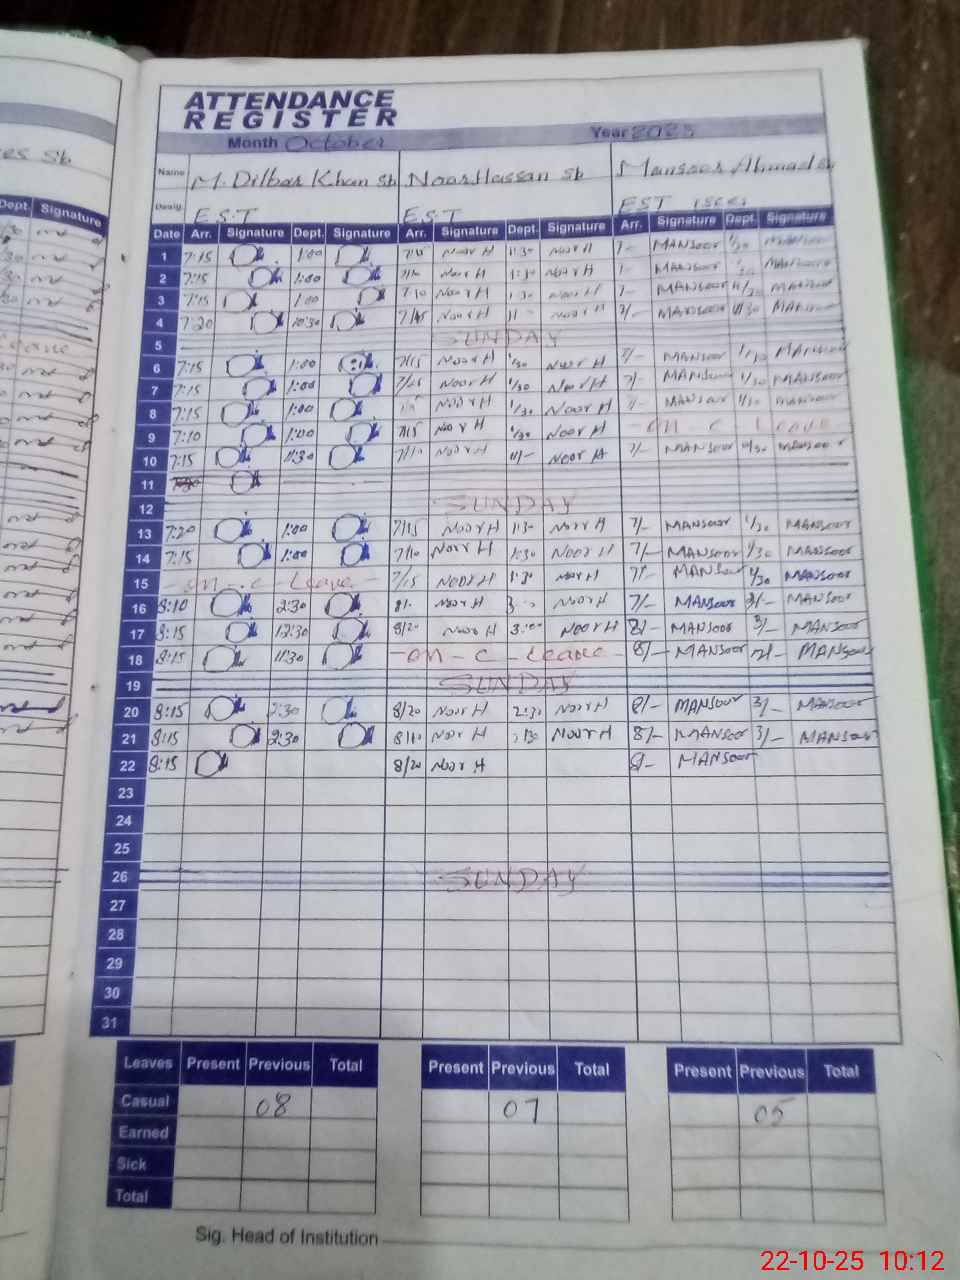 ATTENDANCE
REGISTER
Month October Year 2025
Name M. Dilbar Khan Sb Noor Hassan Sb Mansoor Ahmad Sb
Desig. E.S.T E.S.T EST
Dept. Signature
Date Arr. Signature Dept. Signature Arr. Signature Dept. Signature Arr. Signature Dept. Signature
1 7:15 1:00 7/15 Noor H 1:30 Noor H 7- MANSOOR 1/30 MANSOOR
2 7:15 1:00 7/10 Noor H 1:30 Noor H 7- MANSOOR MANSOOR
3 7:15 1:00 7/10 Noor H 1:30 Noor H 7- MANSOOR MANSOOR
4 7:20 10:30 7/15 Noor H 11- Noor H 7/- MANSOOR MANSOOR
5 SUNDAY
6 7:15 1:00 7/15 Noor H 1/30 Noor H 7/- MANSOOR 1/30 MANSOOR
7 7:15 1:00 7/15 Noor H 1/30 Noor H 7/- MANSOOR 1/30 MANSOOR
8 7:15 1:00 Noor H 1/30 Noor H 7/- MANSOOR 1/30 MANSOOR
9 7:10 1:00 7/15 Noor H 1/30 Noor H - on - c - Leave
10 7:15 11:30 7/10 Noor H 11/- Noor H 7/- MANSOOR MANSOOR
11
12 SUNDAY
13 7:20 1:00 7/15 Noor H 1:30 Noor H 7/- MANSOOR 1/30 MANSOOR
14 7:15 1:00 7/10 Noor H 1:30 Noor H 7/- MANSOOR 1/30 MANSOOR
15 - on - c - Leave - 7/15 Noor H 1:30 Noor H 7/- MANSOOR 1/30 MANSOOR
16 8:10 2:30 8/- Noor H Noor H 7/- MANSOOR 3/- MANSOOR
17 8:15 12:30 8/20 Noor H 3:00 Noor H 8/- MANSOOR 3/- MANSOOR
18 8:15 11:30 - on - c - Leave - 8/- MANSOOR 12/- MANSOOR
19 SUNDAY
20 8:15 2:30 8/20 Noor H 2:30 Noor H 8/- MANSOOR 3/- MANSOOR
21 8:15 2:30 8/10 Noor H Noor H 8/- MANSOOR 3/- MANSOOR
22 8:15 8/20 Noor H 8/- MANSOOR
23
24
25
26 SUNDAY
27
28
29
30
31
Leaves Present Previous Total Present Previous Total Present Previous Total
Casual 08 07 05
Earned
Sick
Total
Sig. Head of Institution
22-10-25 10:12